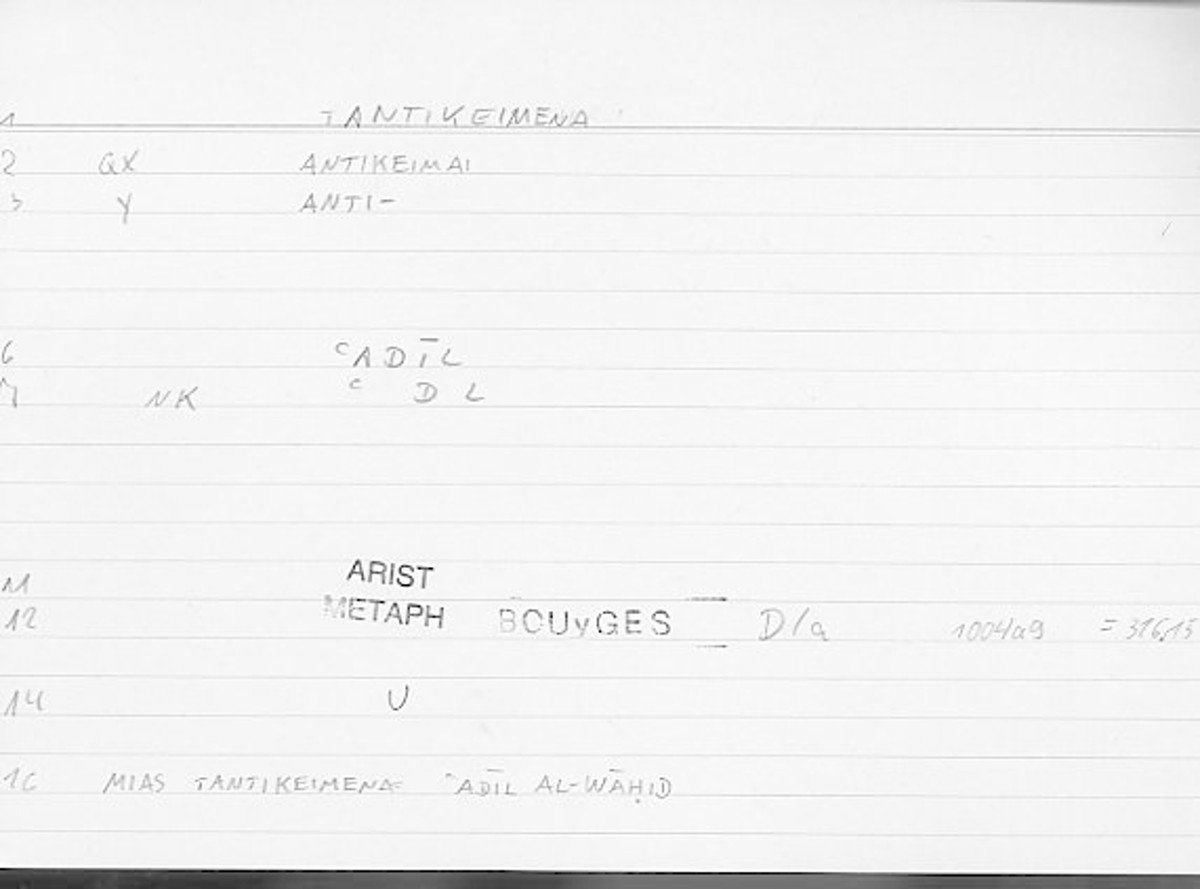 1 TANTIKEIMENA
2 QX ANTIKEIMAI
3 Y ANTI-
6 ᶜADĪL
7 NK ᶜ D L
11 ARIST
12 METAPH BOUyGES D/a 1004a9 = 316,15
14 U
16 MIAS TANTIKEIMENA ᶜADĪL AL-WĀḤID